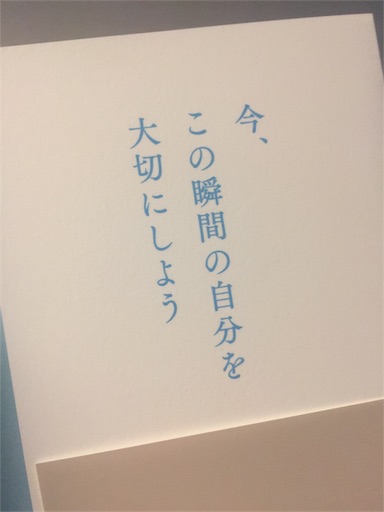 今、
この瞬間の自分を
大切にしよう